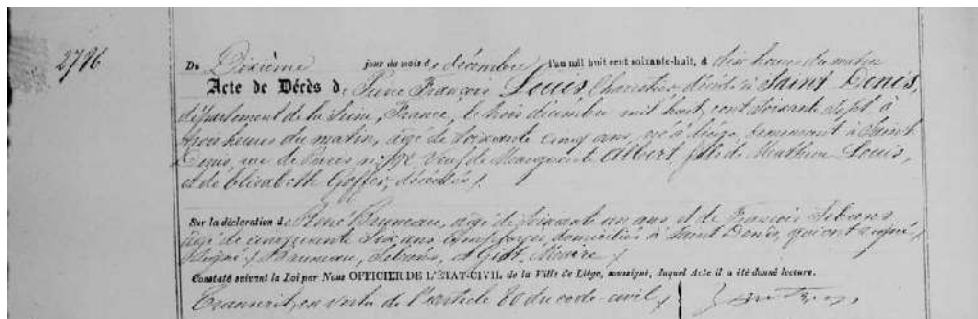 2796
Du Dixième jour du mois de décembre l'an mil huit cent soixante-huit, à dix heures du matin
Acte de Décès de Pierre François Louis, Charretier, décédé à Saint Denis,
département de la Seine, France, le trois décembre mil huit cent soixante sept à
heures du matin, âgé de soixante cinq ans, né à Liège, demeurant à Saint
Denis, rue de Paris veuf de Marguerite Albert, fils de Mathieu Louis,
et de Elisabeth Goffer, décédés /.
Sur la déclaration de René Bruneau, âgé de soixante un ans et de François Lebrun
âgé de cinquante six ans, employés, domiciliés à Saint Denis, qui ont signé /
signé / Bruneau, Lebrun, et Giot, Maire /.
Constaté suivant la Loi par Nous OFFICIER DE L'ÉTAT-CIVIL de la Ville de Liège, soussigné, duquel Acte il a été donné lecture.
Transcrit, en vertu de l'article 80 du code civil /